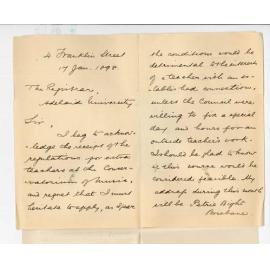 4 Franklin Street
17 Jan. 1898
The Registrar,
Adelaide University
Sir,
I beg to acknow-
ledge the receipt of the
regulations for extra
teachers at the Conser-
vatorium of Music,
and regret that I must
hesitate to apply, as I fear
the conditions would be
detrimental to the interests
of a teacher with an es-
tablished connection,
unless the Council were
willing to fix a special
day and hours for an
outside teacher's work.
I should be glad to know
if this course would be
considered feasible. My
address during this month
will be Petrie Bight
Brisbane